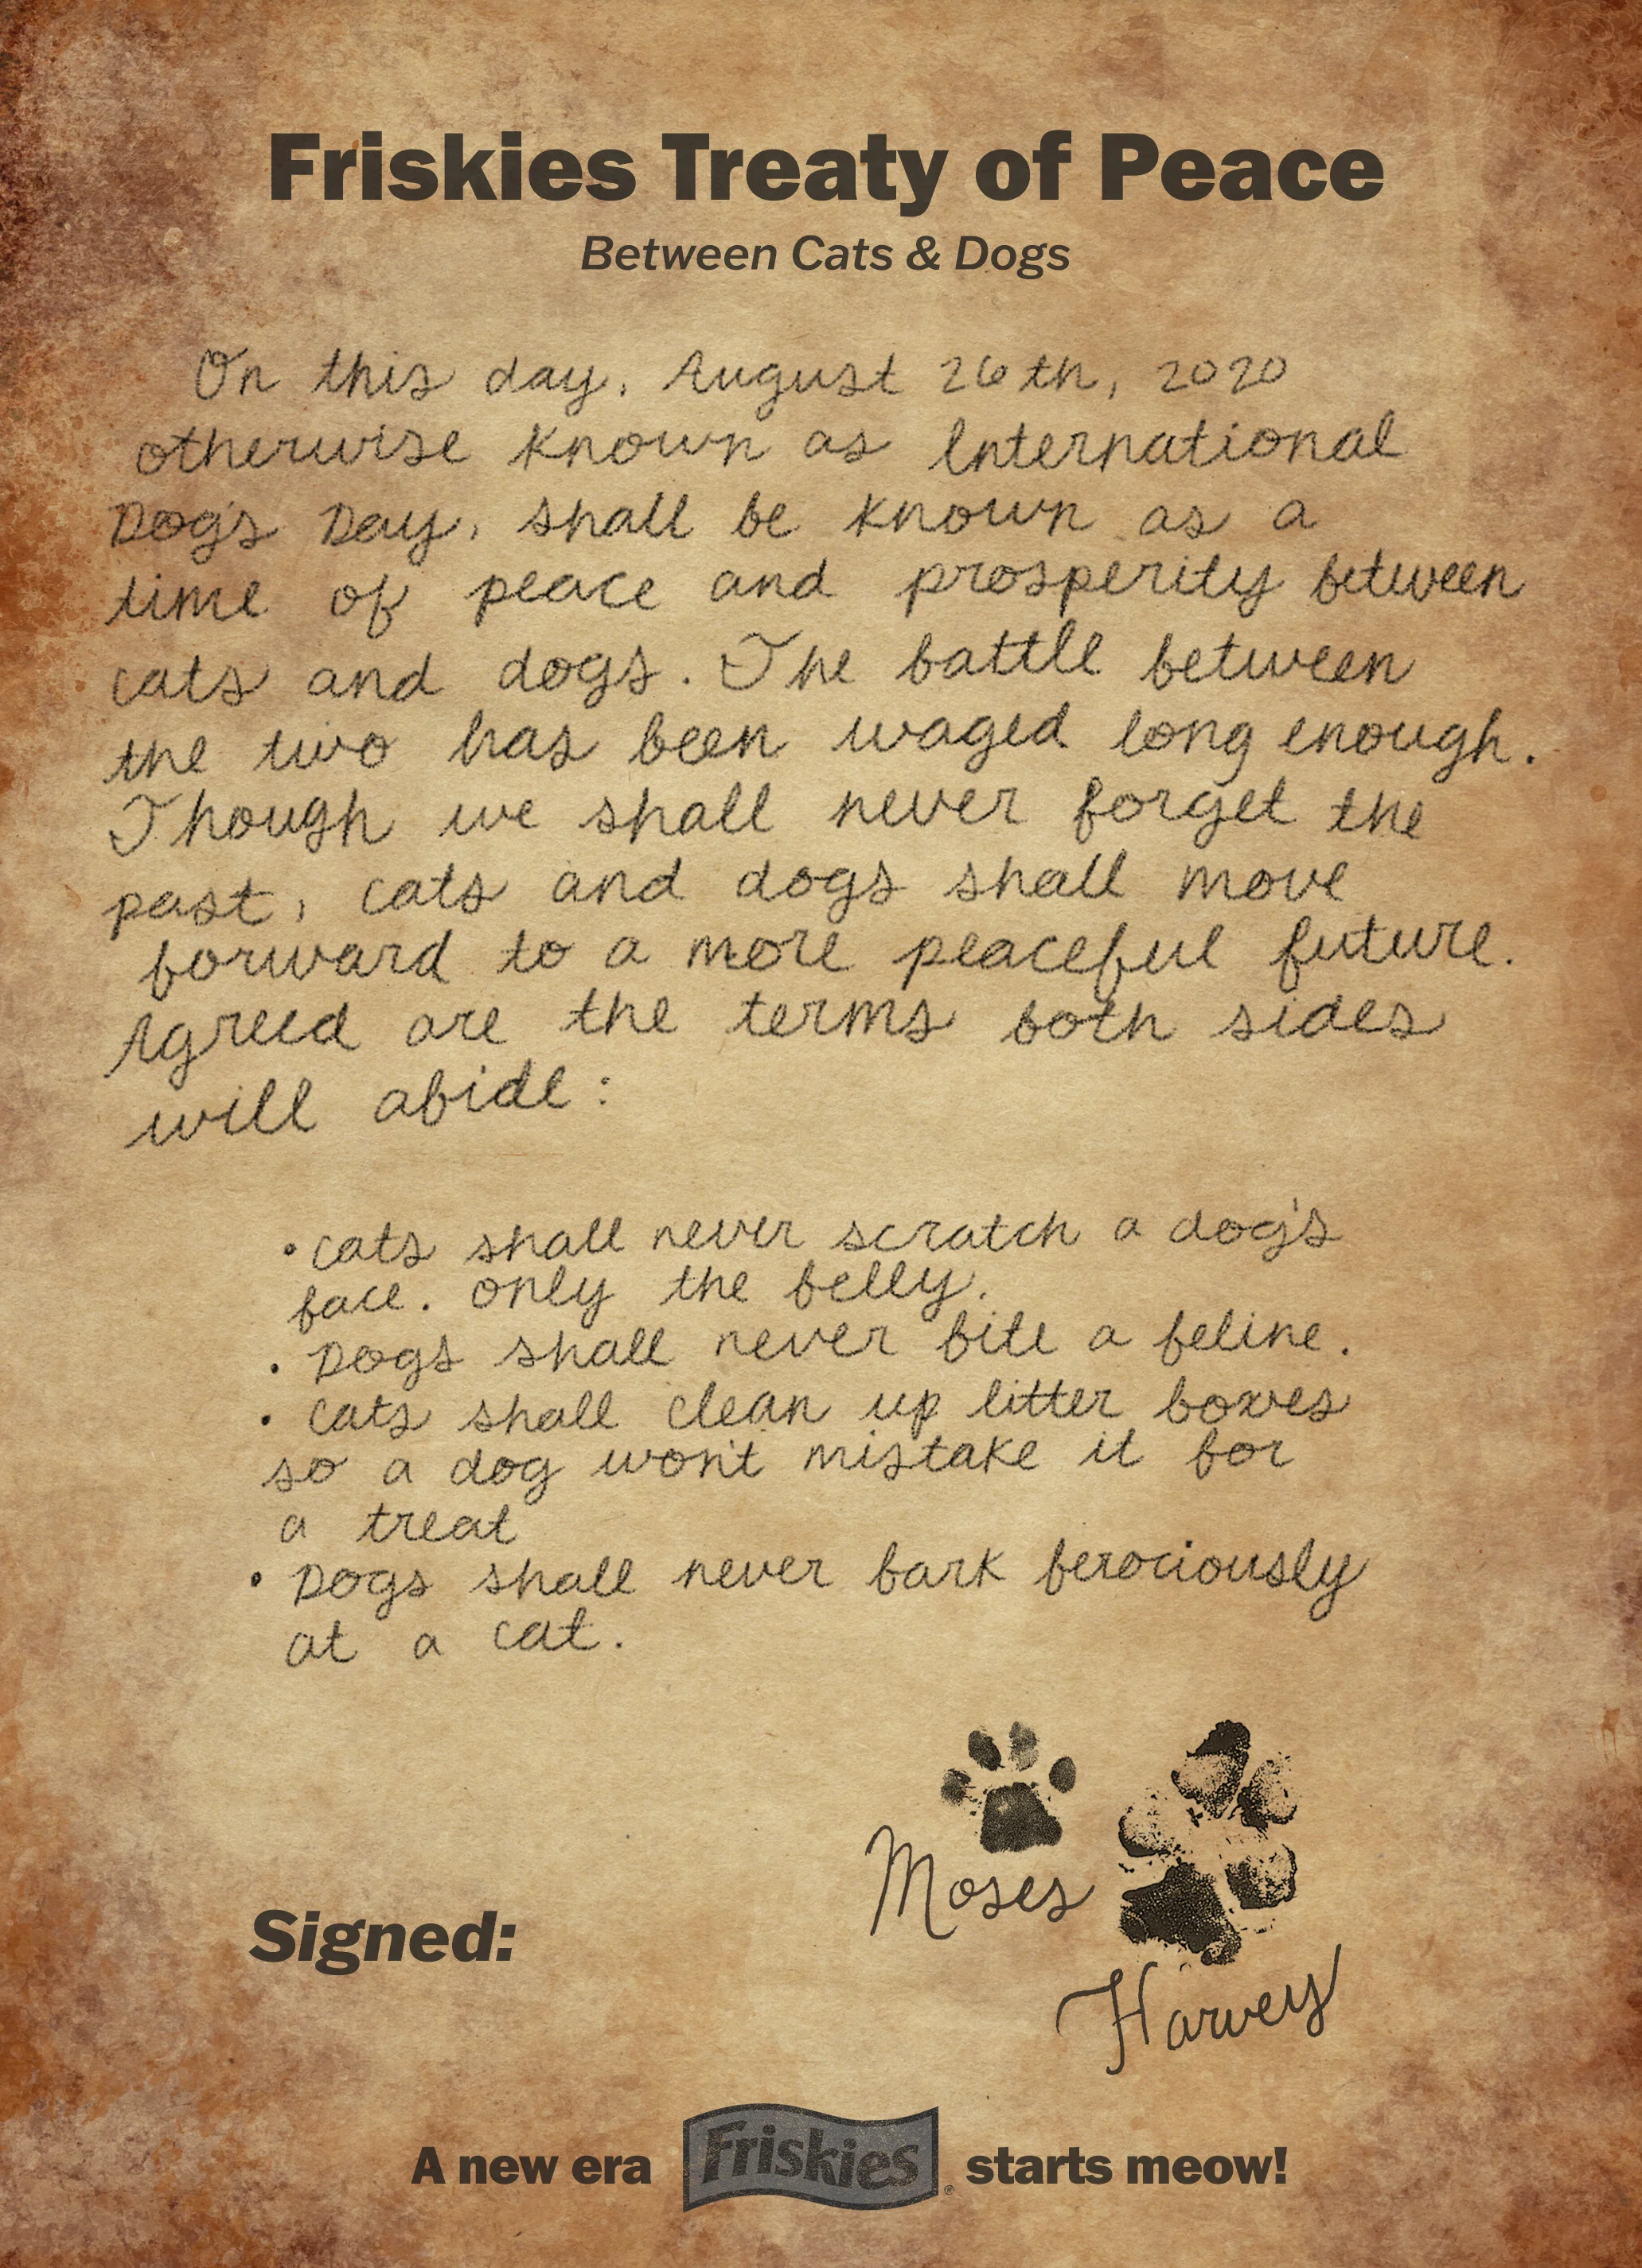 Friskies Treaty of Peace
Between Cats & Dogs
On this day, August 26th, 2020
otherwise known as International
Dog's Day, shall be known as a
time of peace and prosperity between
cats and dogs. The battle between
the two has been waged long enough.
Though we shall never forget the
past, cats and dogs shall move
forward to a more peaceful future.
Agreed are the terms both sides
will abide:
• cats shall never scratch a dog's
face. only the belly.
• Dogs shall never bite a feline.
• cats shall clean up litter boxes
so a dog won't mistake it for
a treat
• Dogs shall never bark ferociously
at a cat.
Moses
Signed:
Harvey
A new era Friskies® starts meow!